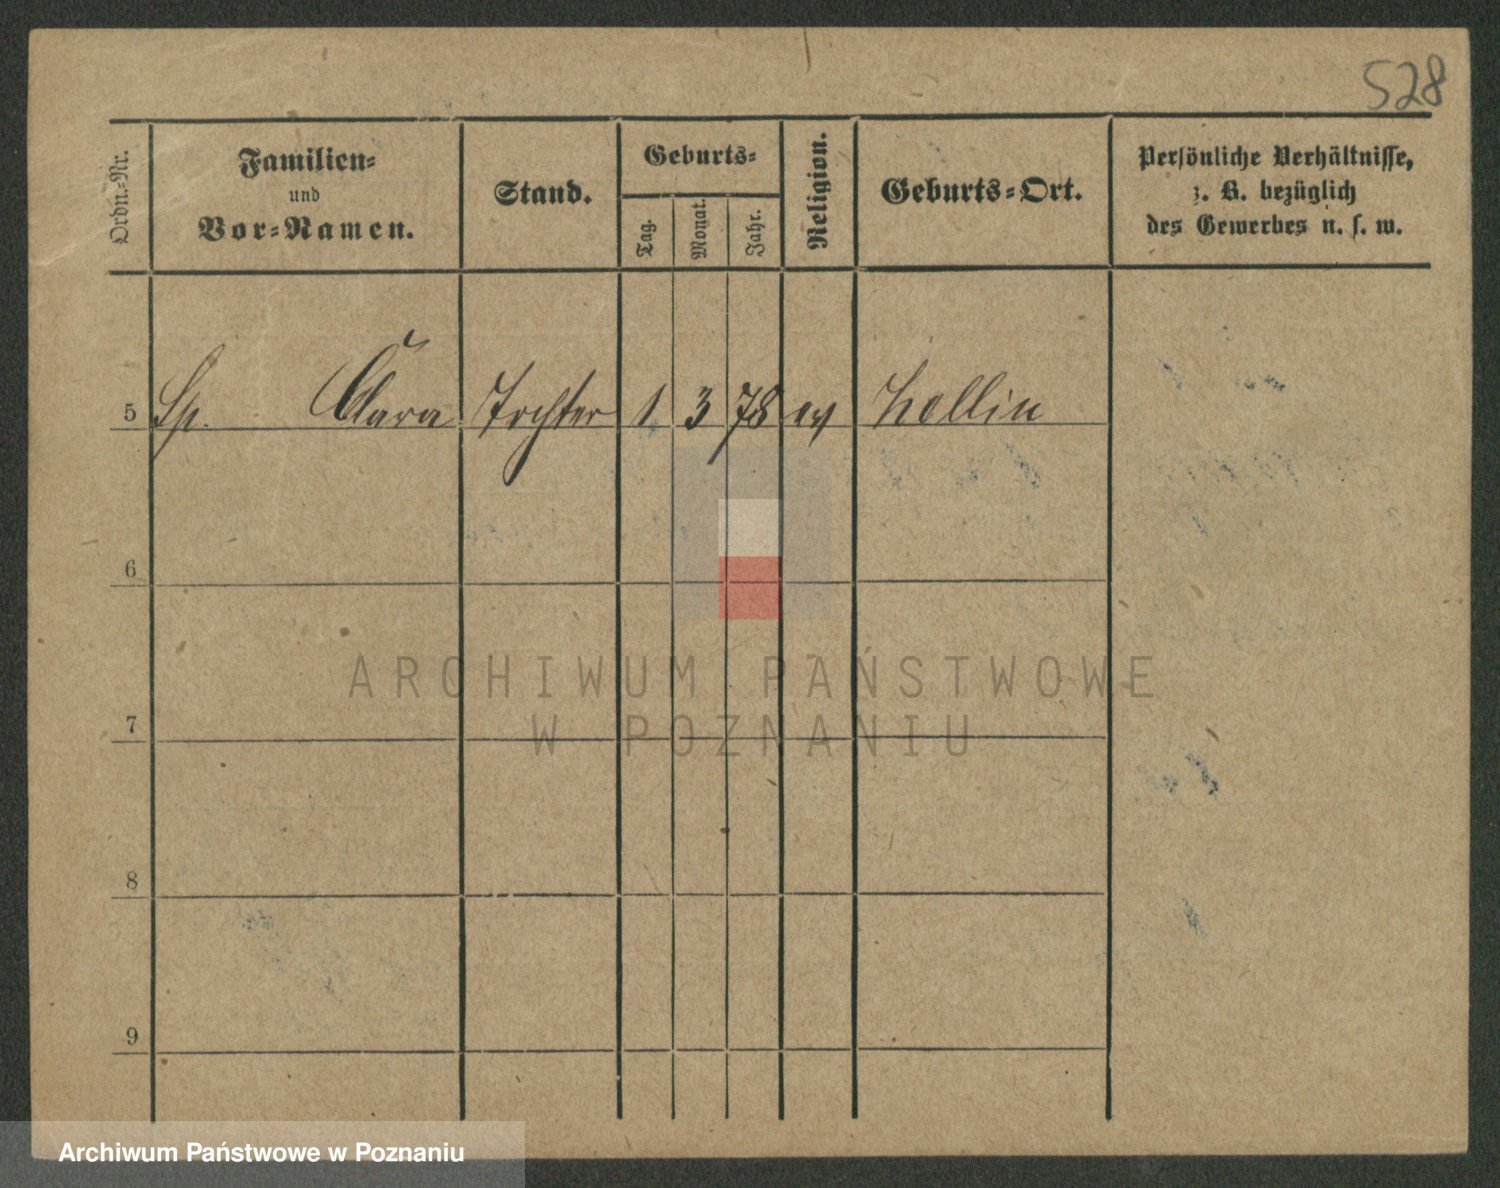 528
Ordn.-Nr.
Familien-
und
Vor-Namen.
Stand.
Geburts-
Tag.
Monat.
Jahr.
Religion.
Geburts-Ort.
Persönliche Verhältnisse,
z. B. bezüglich
des Gewerbes u. s. w.
5 Sp. Clara Tochter 1 3 78 ev
6
ARCHIWUM PAŃSTWOWE
W POZNANIU
7
8
9
Archiwum Państwowe w Poznaniu